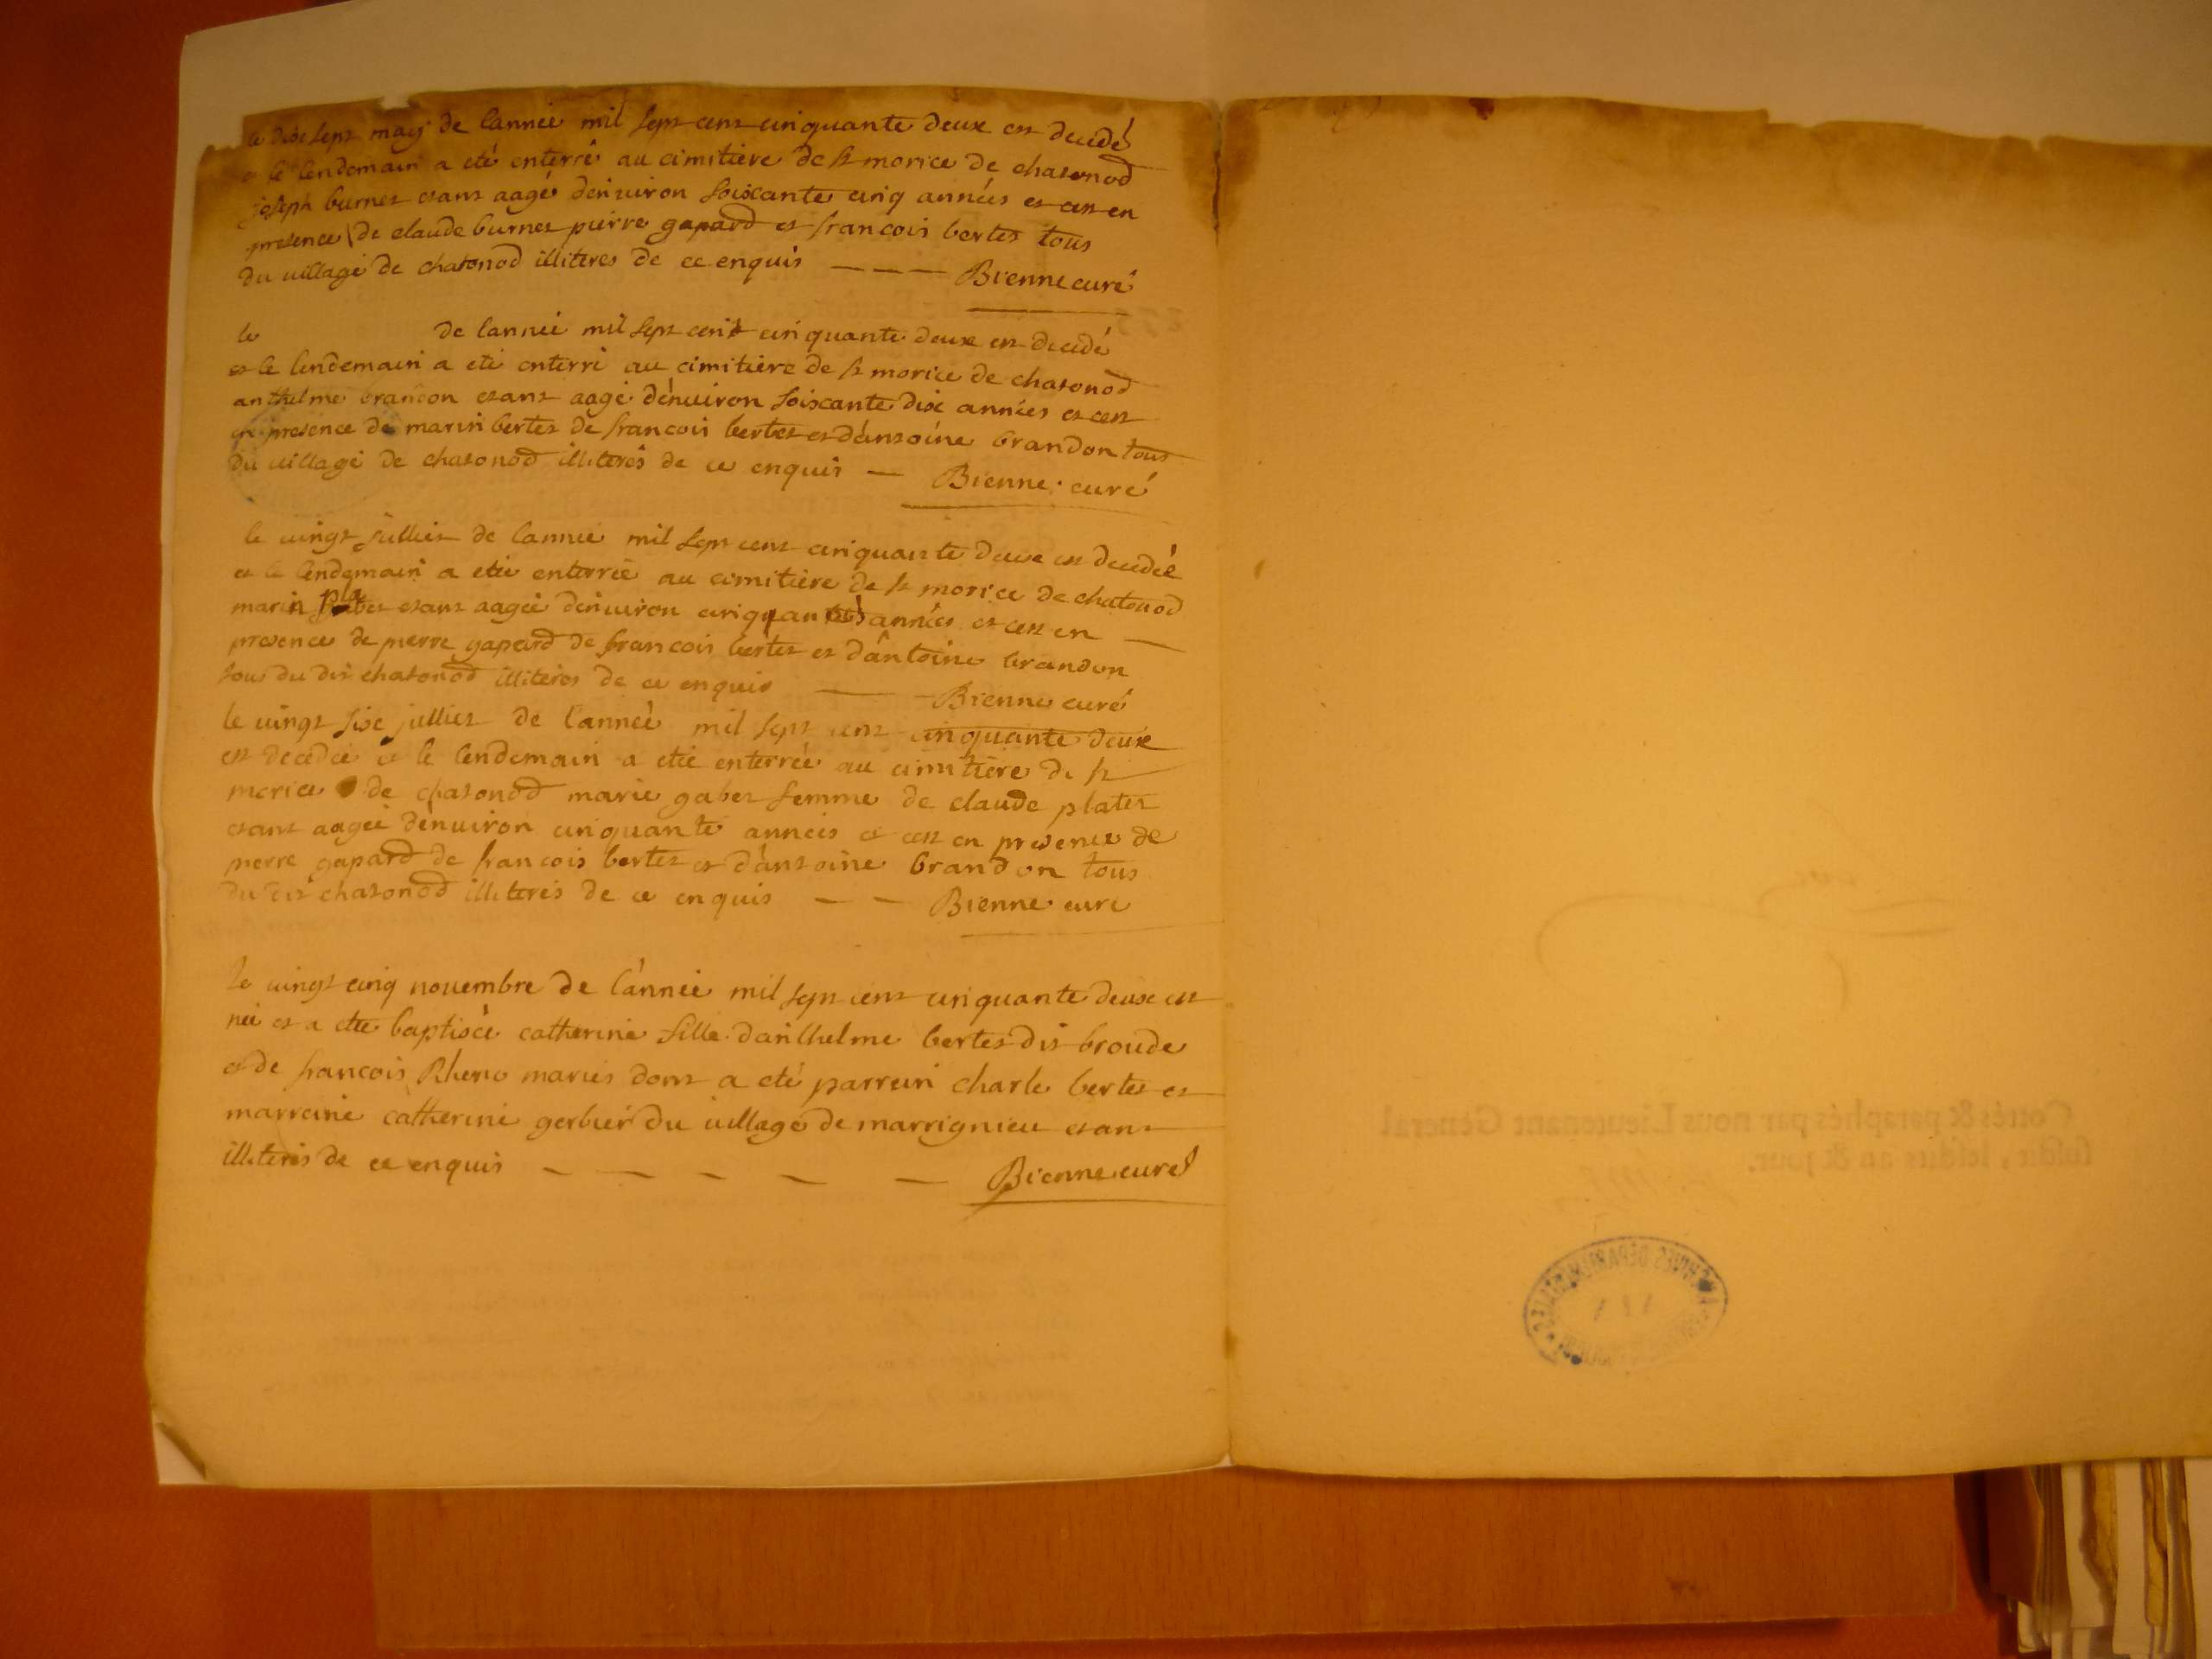 le dise sept mays de lannee mil sept cent cinquante deux est decedé
et le lendemain a eté enterré au cimitiere de st morice de chatonod
joseph burnet etant aagé denuiron soixante cinq années et cest en
presence de claude burnet pierre gapard et francois bertet tous
du uillage de chatonod illiteres de ce enquis Bienne curé
le de lannee mil sept cent cinquante deux est decedé
et le lendemain a eté enterré au cimitiere de st morice de chatonod
anthelme brandon etant aagé denuiron soixante dix années et cest
en presence de marin bertet de francois bertet et dantoine brandon tous
du uillage de chatonod illiteres de ce enquis Bienne curé
le uingt julliet de lannee mil sept cent cinquante deux est decedée
et le lendemain a etée enterrée au cimitiere de st morice de chatonod
marin etant aagée denuiron cinquante années et cest en
presence de pierre gapard de francois bertet et dantoine brandon
tous du dit chatonod illiteres de ce enquis Bienne curé
le uingt six julliet de lannee mil sept cent cinquante deux
est decedée et le lendemain a etée enterrée au cimitiere de st
morice de chatonod marie gabet femme de claude platet
etant aagée denuiron cinquante années et cest en presence de
pierre gapard de francois bertet et dantoine brandon tous
du dit chatonod illiteres de ce enquis Bienne curé
le uingt cinq nouembre de lannee mil sept cent cinquante deux est
née et a etée baptisée catherine fille danthelme bertet dit broude
et de francois Rheno mariés dont a eté parrein charle bertet et
marreine catherine gerbier du uillage de marrignieu etant
illiteres de ce enquis Bienne curé
Cottés & paraphés par nous Lieutenant Général
susdit, lesdits an & jour.
ARCHIVES DÉPARTEMENTALES